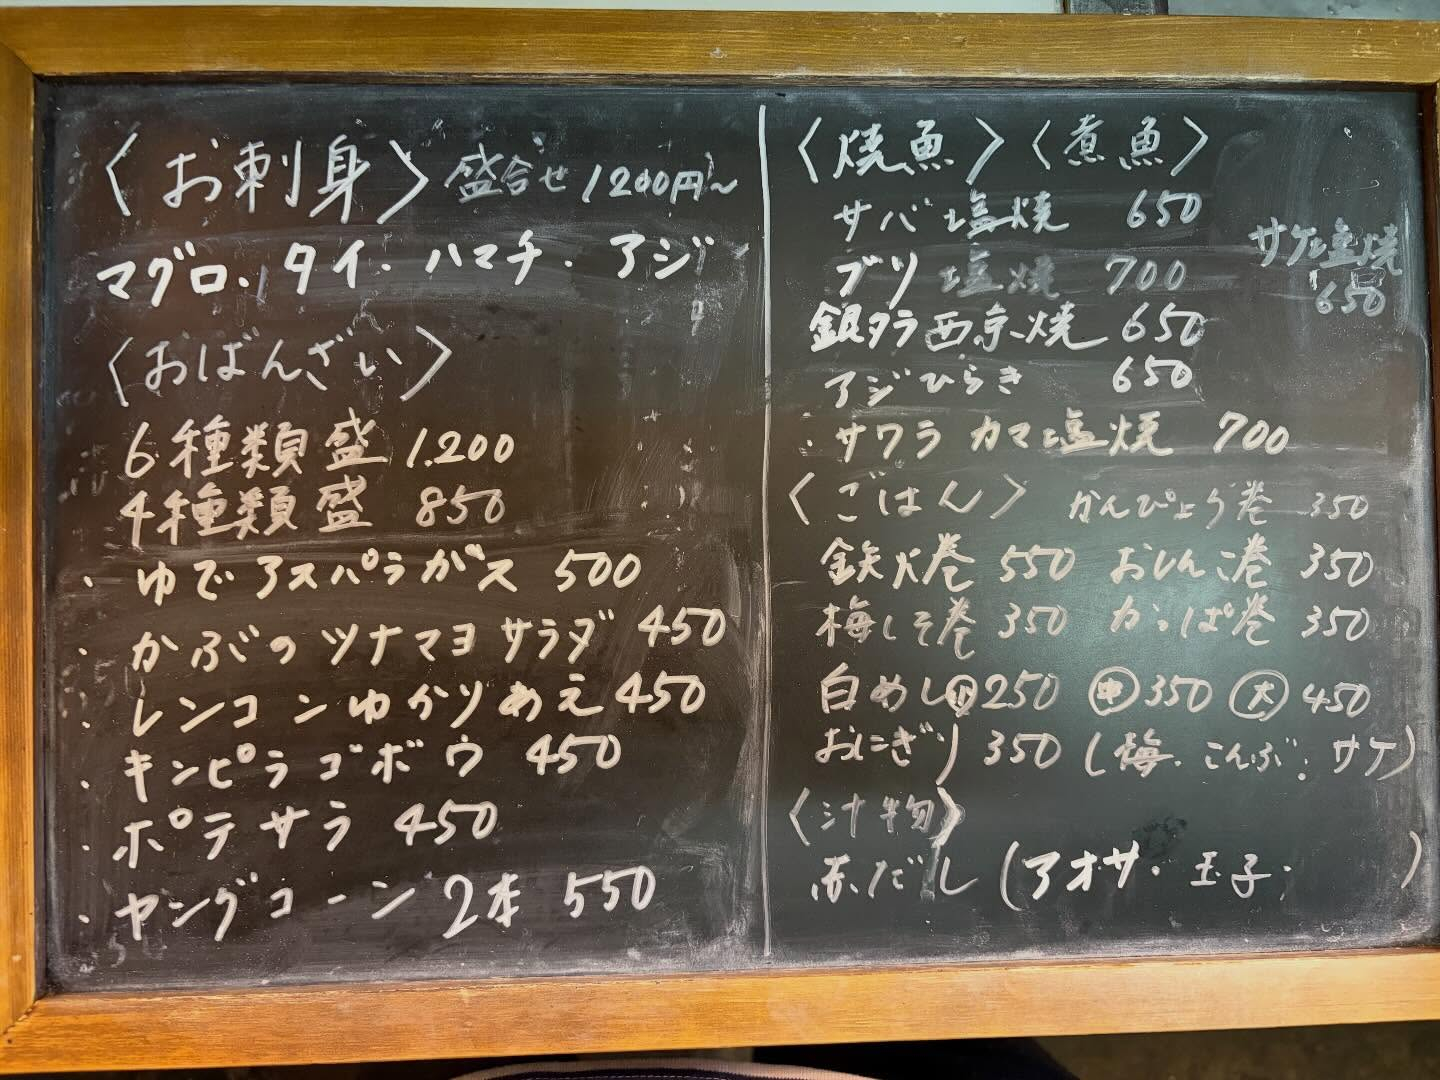 〈お刺身〉盛合せ 1200円〜
マグロ・タイ・ハマチ・アジ
〈おばんざい〉
6種類盛 1.200
4種類盛 850
・ゆでアスパラガス 500
・かぶのツナマヨサラダ 450
・レンコンゆかりあえ 450
・キンピラゴボウ 450
・ポテサラ 450
・ヤングコーン 2本 550
〈焼魚〉〈煮魚〉
サバ塩焼 650
サケ塩焼
650
ブリ塩焼 700
銀タラ西京焼 650
アジひらき 650
・サワラカマ塩焼 700
〈ごはん〉 かんぴょう巻 350
鉄火巻 550 おしんこ巻 350
梅しそ巻 350 かっぱ巻 350
白めし小250 中350 大450
おにぎり 350 (梅・こんぶ・サケ)
〈汁物〉
赤だし (アオサ・玉子・ )